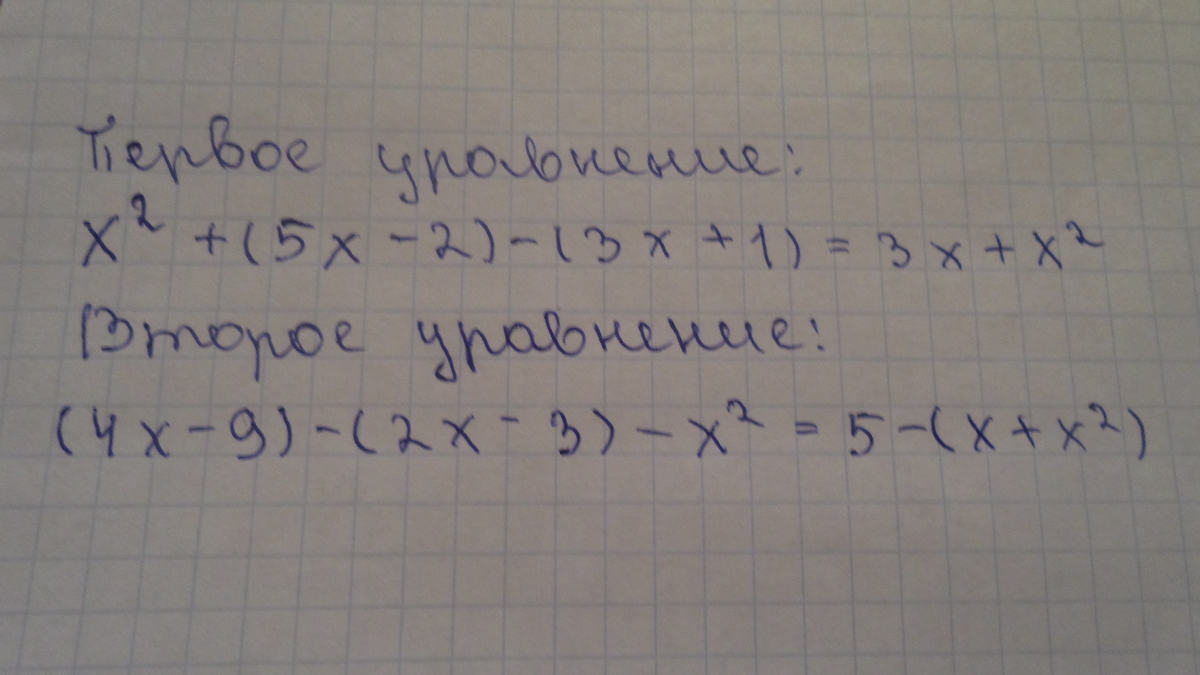 Первое уравнение:
x² + (5x - 2) - (3x + 1) = 3x + x²
Второе уравнение:
(4x - 9) - (2x - 3) - x² = 5 - (x + x²)